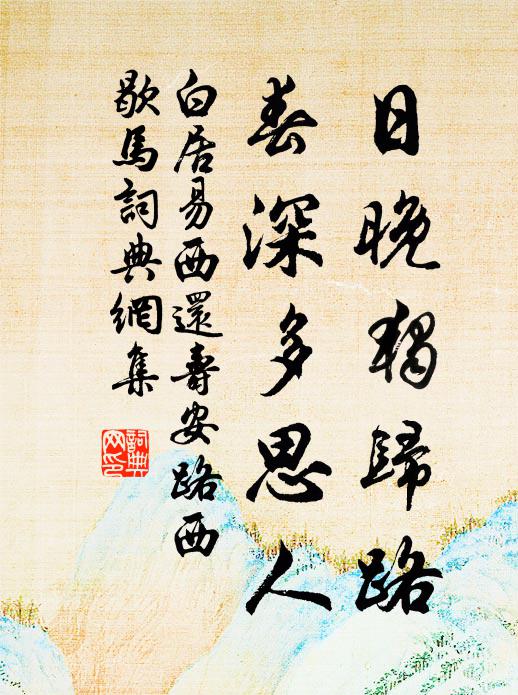 日晚獨歸路
春深多思人
白居易西還壽安路西
歇馬詞典網集
詞典
网印